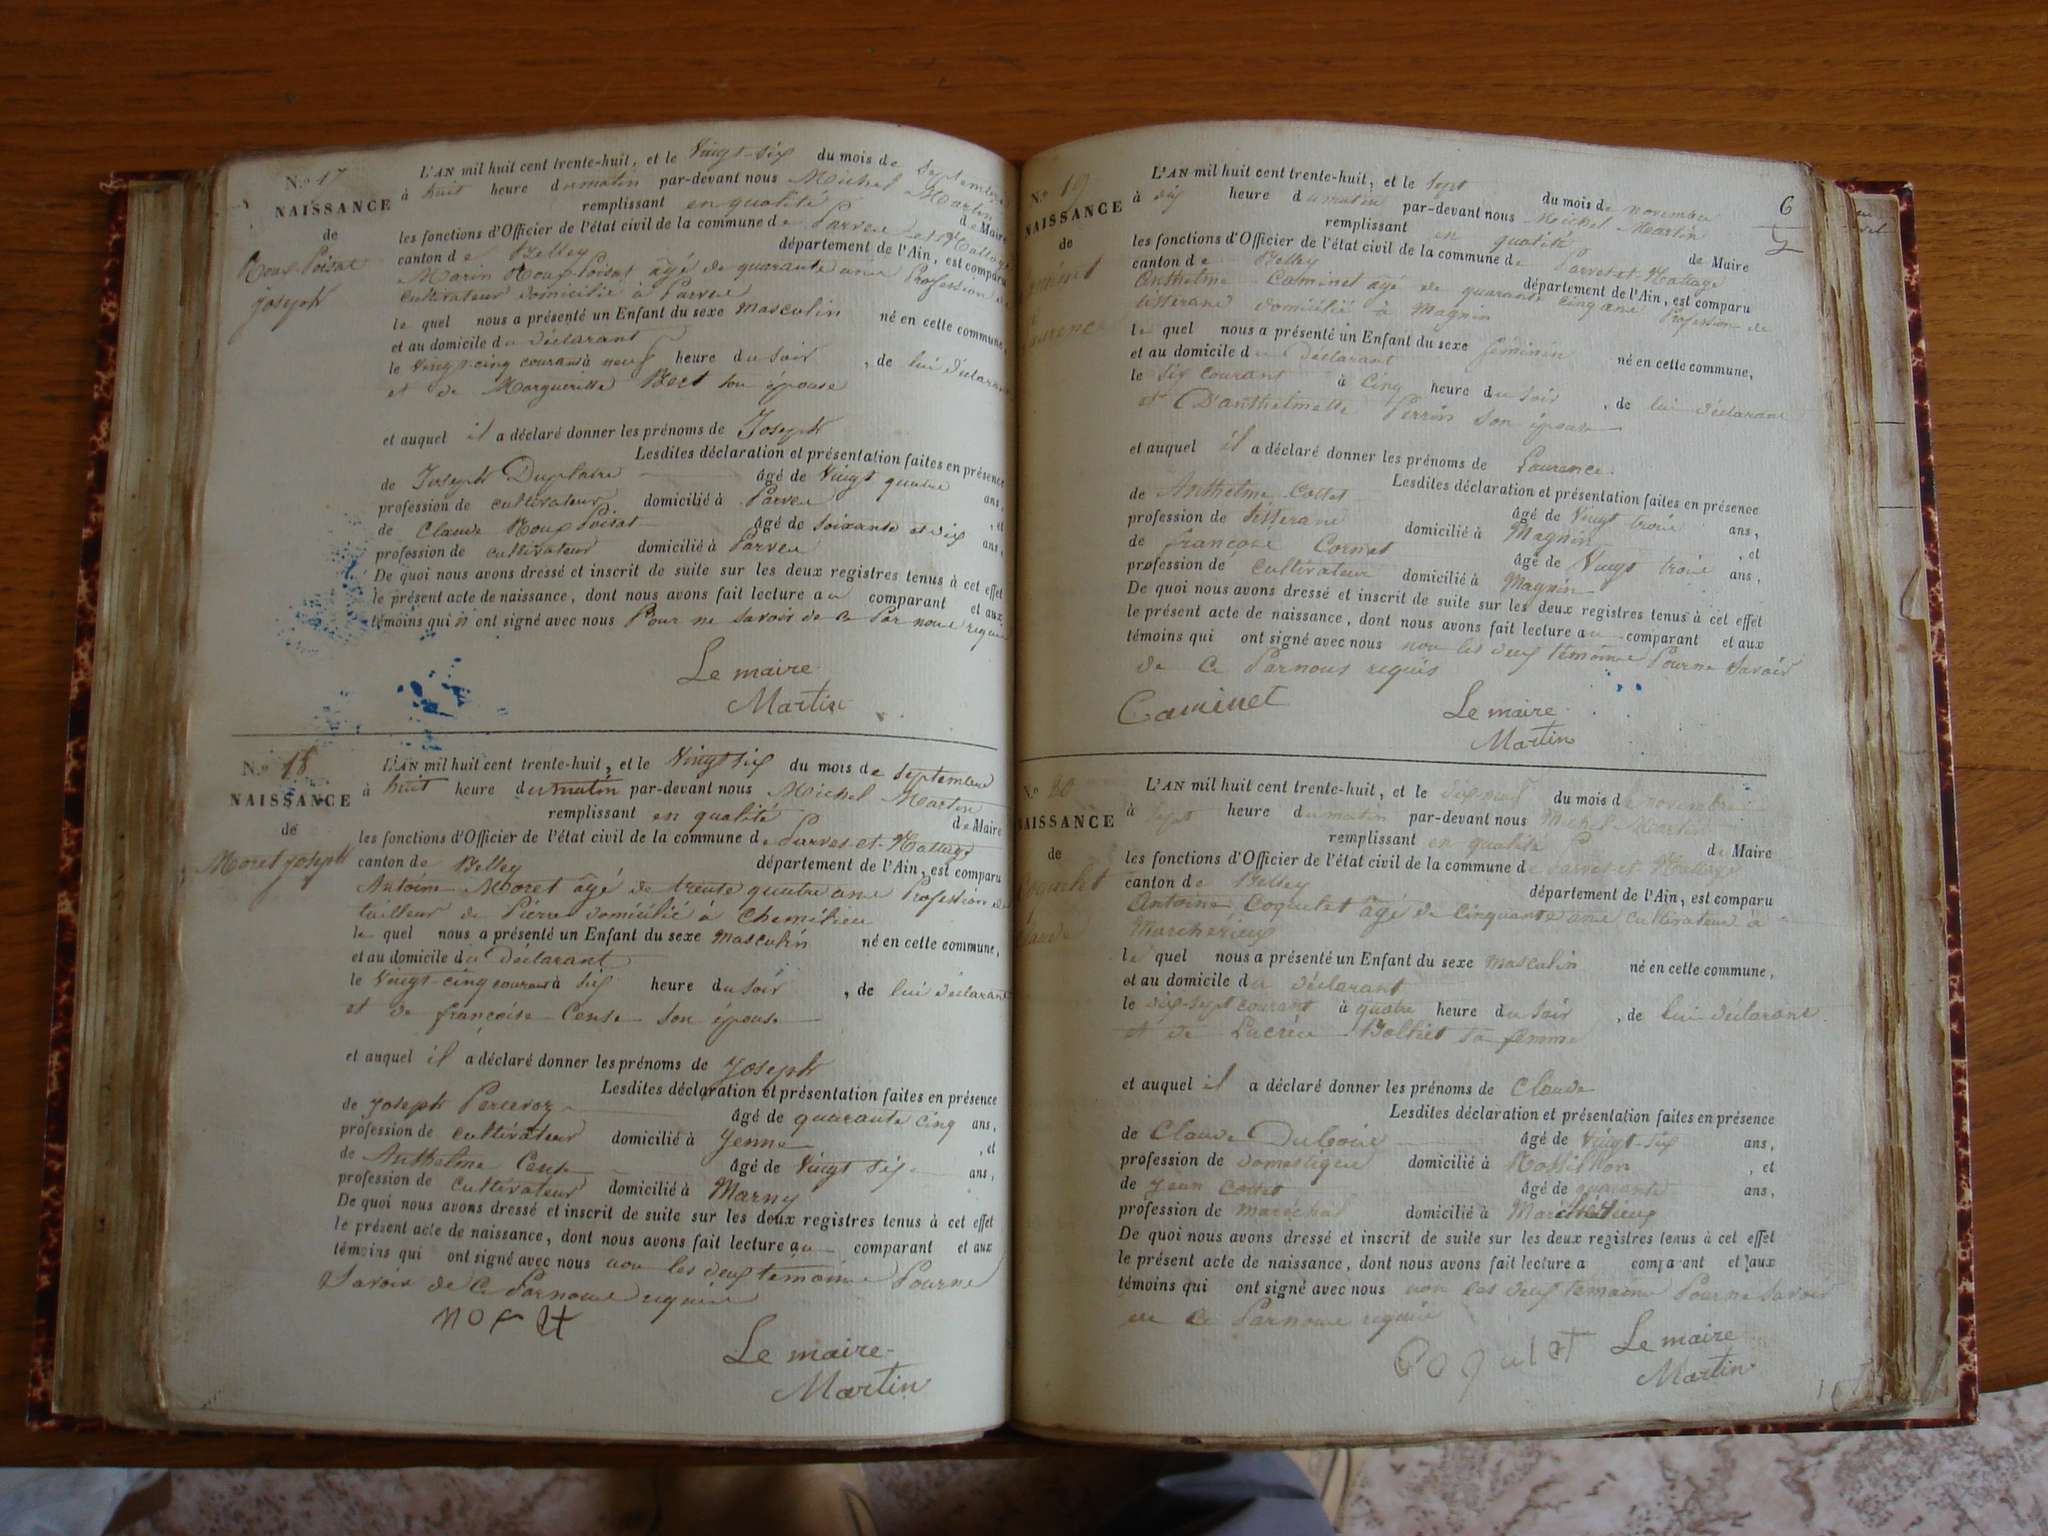 N.º 17
NAISSANCE
de
Roux Poisat
joseph
L'AN mil huit cent trente-huit, et le Vingt-six du mois de septembre
à huit heure du matin par-devant nous Michel Martin
remplissant en qualité de Maire
les fonctions d'Officier de l'état civil de la commune de Parves et Nattage
canton de Belley département de l'Ain, est comparu
Marin Roux Poisat âgé de quarante ans Profession de
cultivateur domicilié à Parves
le quel nous a présenté un Enfant du sexe Masculin né en cette commune,
et au domicile du déclarant
le Vingt-cinq courant à neuf heure du soir, de lui déclarant
et de Margueritte Bert son épouse
et auquel il a déclaré donner les prénoms de Joseph
Lesdites déclaration et présentation faites en présence
de Joseph Duplatre âgé de Vingt quatre ans,
profession de cultivateur domicilié à Parves, et
de Claude Roux Poisat âgé de soixante et dix ans,
profession de cultivateur domicilié à Parves
De quoi nous avons dressé et inscrit de suite sur les deux registres tenus à cet effet
le présent acte de naissance, dont nous avons fait lecture au comparant et aux
témoins qui n ont signé avec nous Pour ne savoir de ce Par nous requis
Le maire
Martin
N.º 18
NAISSANCE
de
Moret joseph
L'AN mil huit cent trente-huit, et le Vingt six du mois de septembre
à huit heure du matin par-devant nous Michel Martin
remplissant en qualité de Maire
les fonctions d'Officier de l'état civil de la commune de Parves-et-Nattage
canton de Belley département de l'Ain, est comparu
Antoine Moret âgé de trente quatre ans Profession de
tailleur de Pierre domicilié à Chemilieu
le quel nous a présenté un Enfant du sexe Masculin né en cette commune,
et au domicile du Déclarant
le Vingt-cinq courant à six heure du soir, de lui déclarant
et de françoise Cense son épouse
et auquel il a déclaré donner les prénoms de Joseph
Lesdites déclaration et présentation faites en présence
de Joseph Percevoz âgé de quarante cinq ans,
profession de cultivateur domicilié à Yenne, et
de Anthelme Cense âgé de Vingt six ans,
profession de cultivateur domicilié à Marny
De quoi nous avons dressé et inscrit de suite sur les deux registres tenus à cet effet
le présent acte de naissance, dont nous avons fait lecture au comparant et aux
témoins qui ont signé avec nous non les deux temoins Pour ne
savoir de ce Par nous requis
Le maire
Martin
6
N.º 19
NAISSANCE
de
Caminet
Laurence
L'AN mil huit cent trente-huit, et le sept du mois de novembre
à six heure du matin par-devant nous Michel Martin
remplissant en qualité de Maire
les fonctions d'Officier de l'état civil de la commune de Parves-et-Nattage
canton de Belley département de l'Ain, est comparu
Anthelme Caminet âgé de quarante cinq ans Profession de
tisserand domicilié à Magnin
le quel nous a présenté un Enfant du sexe féminin né en cette commune,
et au domicile du Déclarant
le six courant à cinq heure du soir, de lui déclarant
et D'anthelmette Perrin son épouse
et auquel il a déclaré donner les prénoms de Laurence
Lesdites déclaration et présentation faites en présence
de Anthelme Collet âgé de Vingt trois ans,
profession de tisserand domicilié à Magnin, et
de françois Cornet âgé de Vingt trois ans,
profession de cultivateur domicilié à Magnin
De quoi nous avons dressé et inscrit de suite sur les deux registres tenus à cet effet
le présent acte de naissance, dont nous avons fait lecture au comparant et aux
témoins qui ont signé avec nous non les deux témoins Pour ne savoir
de ce Par nous requis
Caminet
Le maire
Martin
N.º 20
NAISSANCE
de
Coquelet
Claude
L'AN mil huit cent trente-huit, et le dix neuf du mois de novembre
à sept heure du matin par-devant nous Michel Martin
remplissant en qualité de Maire
les fonctions d'Officier de l'état civil de la commune de Parves-et-Nattage
canton de Belley département de l'Ain, est comparu
Antoine Coquelet âgé de cinquante ans cultivateur à
le quel nous a présenté un Enfant du sexe masculin né en cette commune,
et au domicile du déclarant
le dix-sept courant à quatre heure du soir, de lui déclarant
et de sa femme
et auquel il a déclaré donner les prénoms de Claude
Lesdites déclaration et présentation faites en présence
de Claude Dubois âgé de Vingt-six ans,
profession de domestique domicilié à Rossillon, et
de Jean Collet âgé de quarante ans,
profession de maréchal domicilié à
De quoi nous avons dressé et inscrit de suite sur les deux registres tenus à cet effet
le présent acte de naissance, dont nous avons fait lecture a comparant et aux
témoins qui ont signé avec nous non les deux temoins Pour ne savoir
de ce Par nous requis
Coqulet
Le maire
Martin